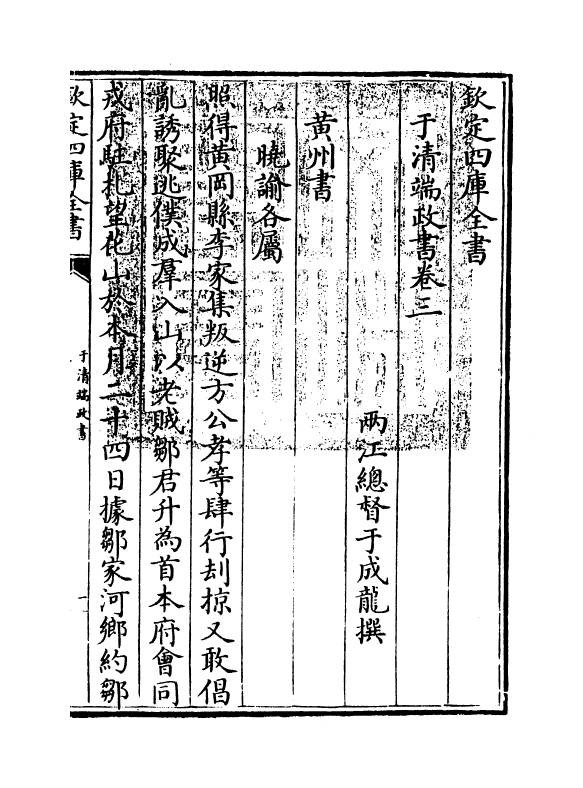 欽定四庫全書
于清端政書卷三
兩江總督于成龍撰
黃州書
曉諭各屬
照得黃岡縣李家集叛逆方公孝等肆行刦掠又敢倡
亂誘聚逃僕成羣入山以老賊鄒君升為首本府會同
戎府駐札望花山於本月二十四日據鄒家河鄉約鄒
欽定四庫全書
于清端政書
一